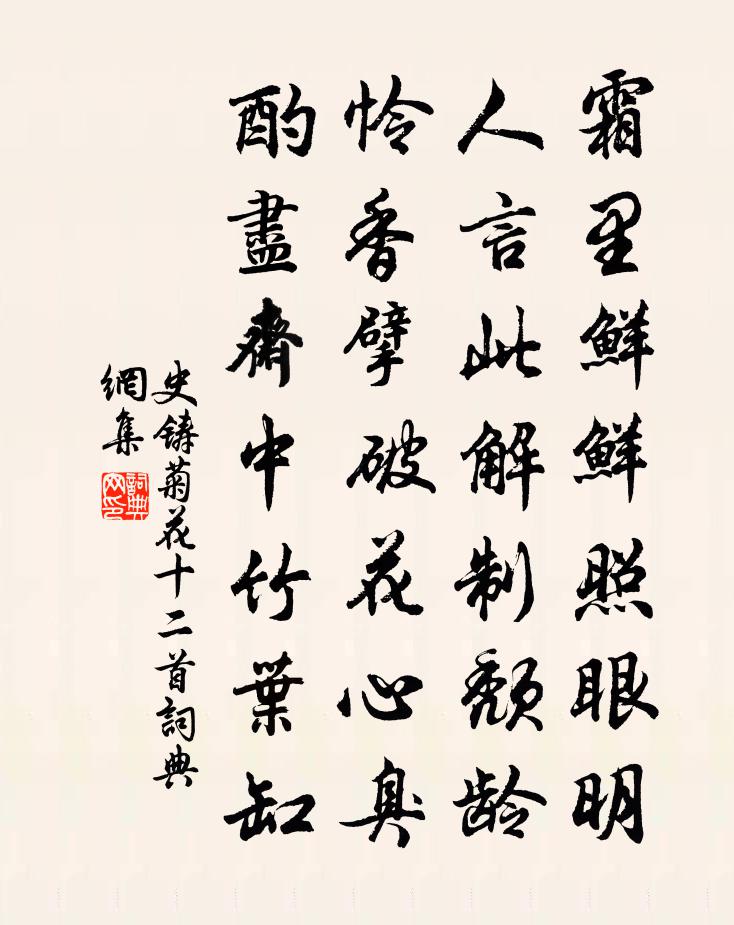 霜里鮮鮮照眼明
人言此解制頽龄
怜香擘破花心臭
酌盡齋中竹葉缸
史铸菊花十二首詞典
網集
詞典
网印